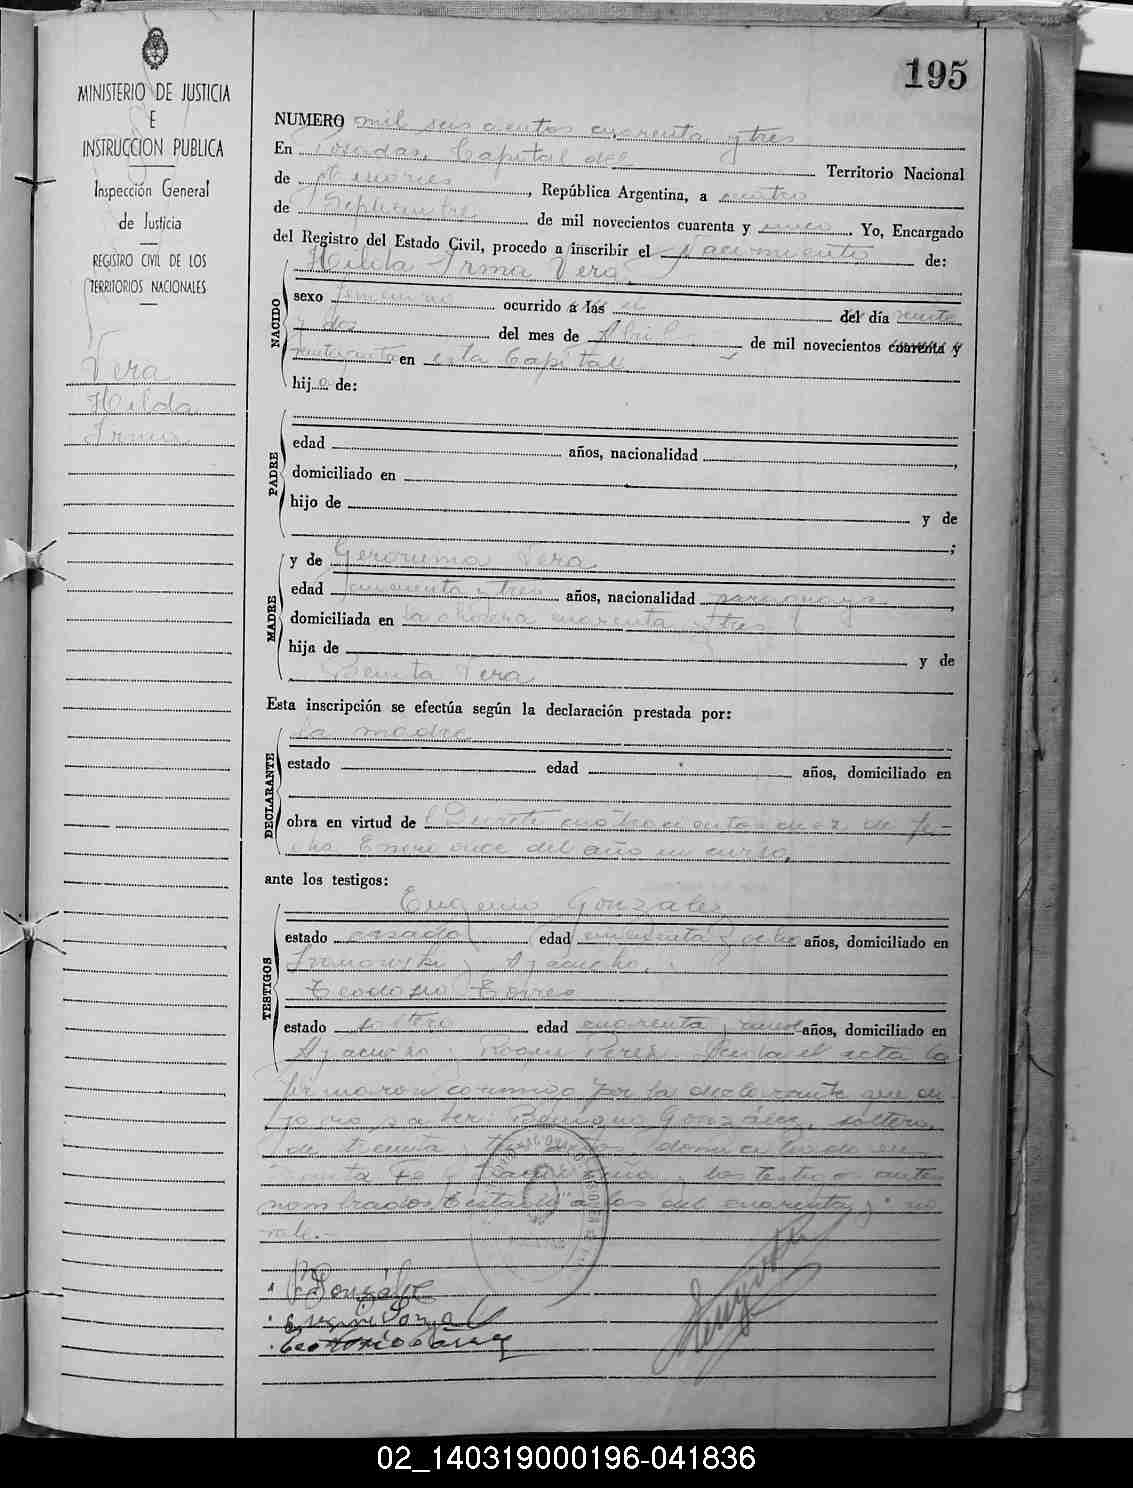 195
MINISTERIO DE JUSTICIA
E
INSTRUCCION PUBLICA
Inspección General
de Justicia
REGISTRO CIVIL DE LOS
TERRITORIOS NACIONALES
Vera
Hilda
Irma
NUMERO mil seis cientos cuarenta y tres
En Posadas, Capital del Territorio Nacional
de Misiones, República Argentina, a cuatro
de Septiembre de mil novecientos cuarenta y cinco. Yo, Encargado
del Registro del Estado Civil, procedo a inscribir el Nacimiento de:
Hilda Irma Vera
NACIDO
sexo femenino ocurrido á las el del día veinte
y dos del mes de Abril de mil novecientos cuarenta y
en esta Capital
hija de:
PADRE
edad años, nacionalidad ,
domiciliado en
hijo de y de
;
MADRE
y de Geronima Vera
edad y tres años, nacionalidad paraguaya,
domiciliada en la chacra cuarenta y tres
hija de y de
Benita Vera
Esta inscripción se efectúa según la declaración prestada por:
DECLARANTE
la madre
estado edad años, domiciliado en
obra en virtud del Decreto cuatrocientos diez de fe-
cha Enero once del año en curso,
ante los testigos:
TESTIGOS
Eugenio González
estado casado edad y ocho años, domiciliado en
y Ayacucho.
Teodosio Torres
estado soltero edad cuarenta y años, domiciliado en
Ayacucho y Roque Perez. Leida el acta la
firmaron conmigo por la declarante que di-
jo no saber: González, soltero,
de treinta y años, domiciliado en
Santa Fe y y los testigos antes
nombrados, Testado "a las del cuarenta y" no
vale.-
González
02_140319000196-041836